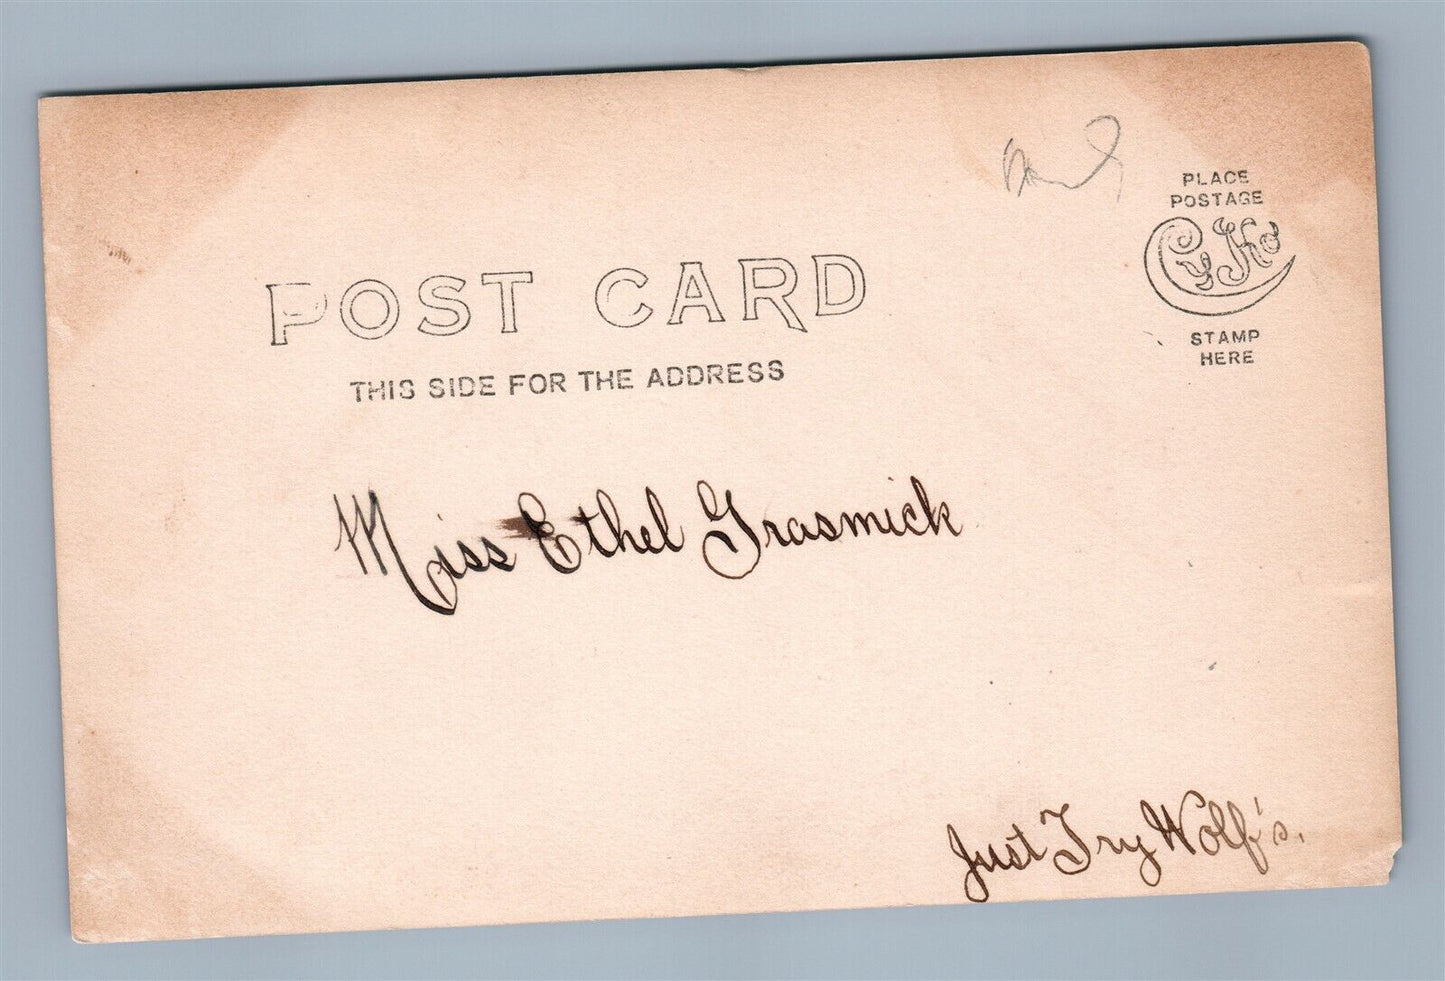 PLACE
POSTAGE
CyKo
STAMP
HERE
POST CARD
THIS SIDE FOR THE ADDRESS
Miss Ethel Grasmick
Just Try Wolf's.